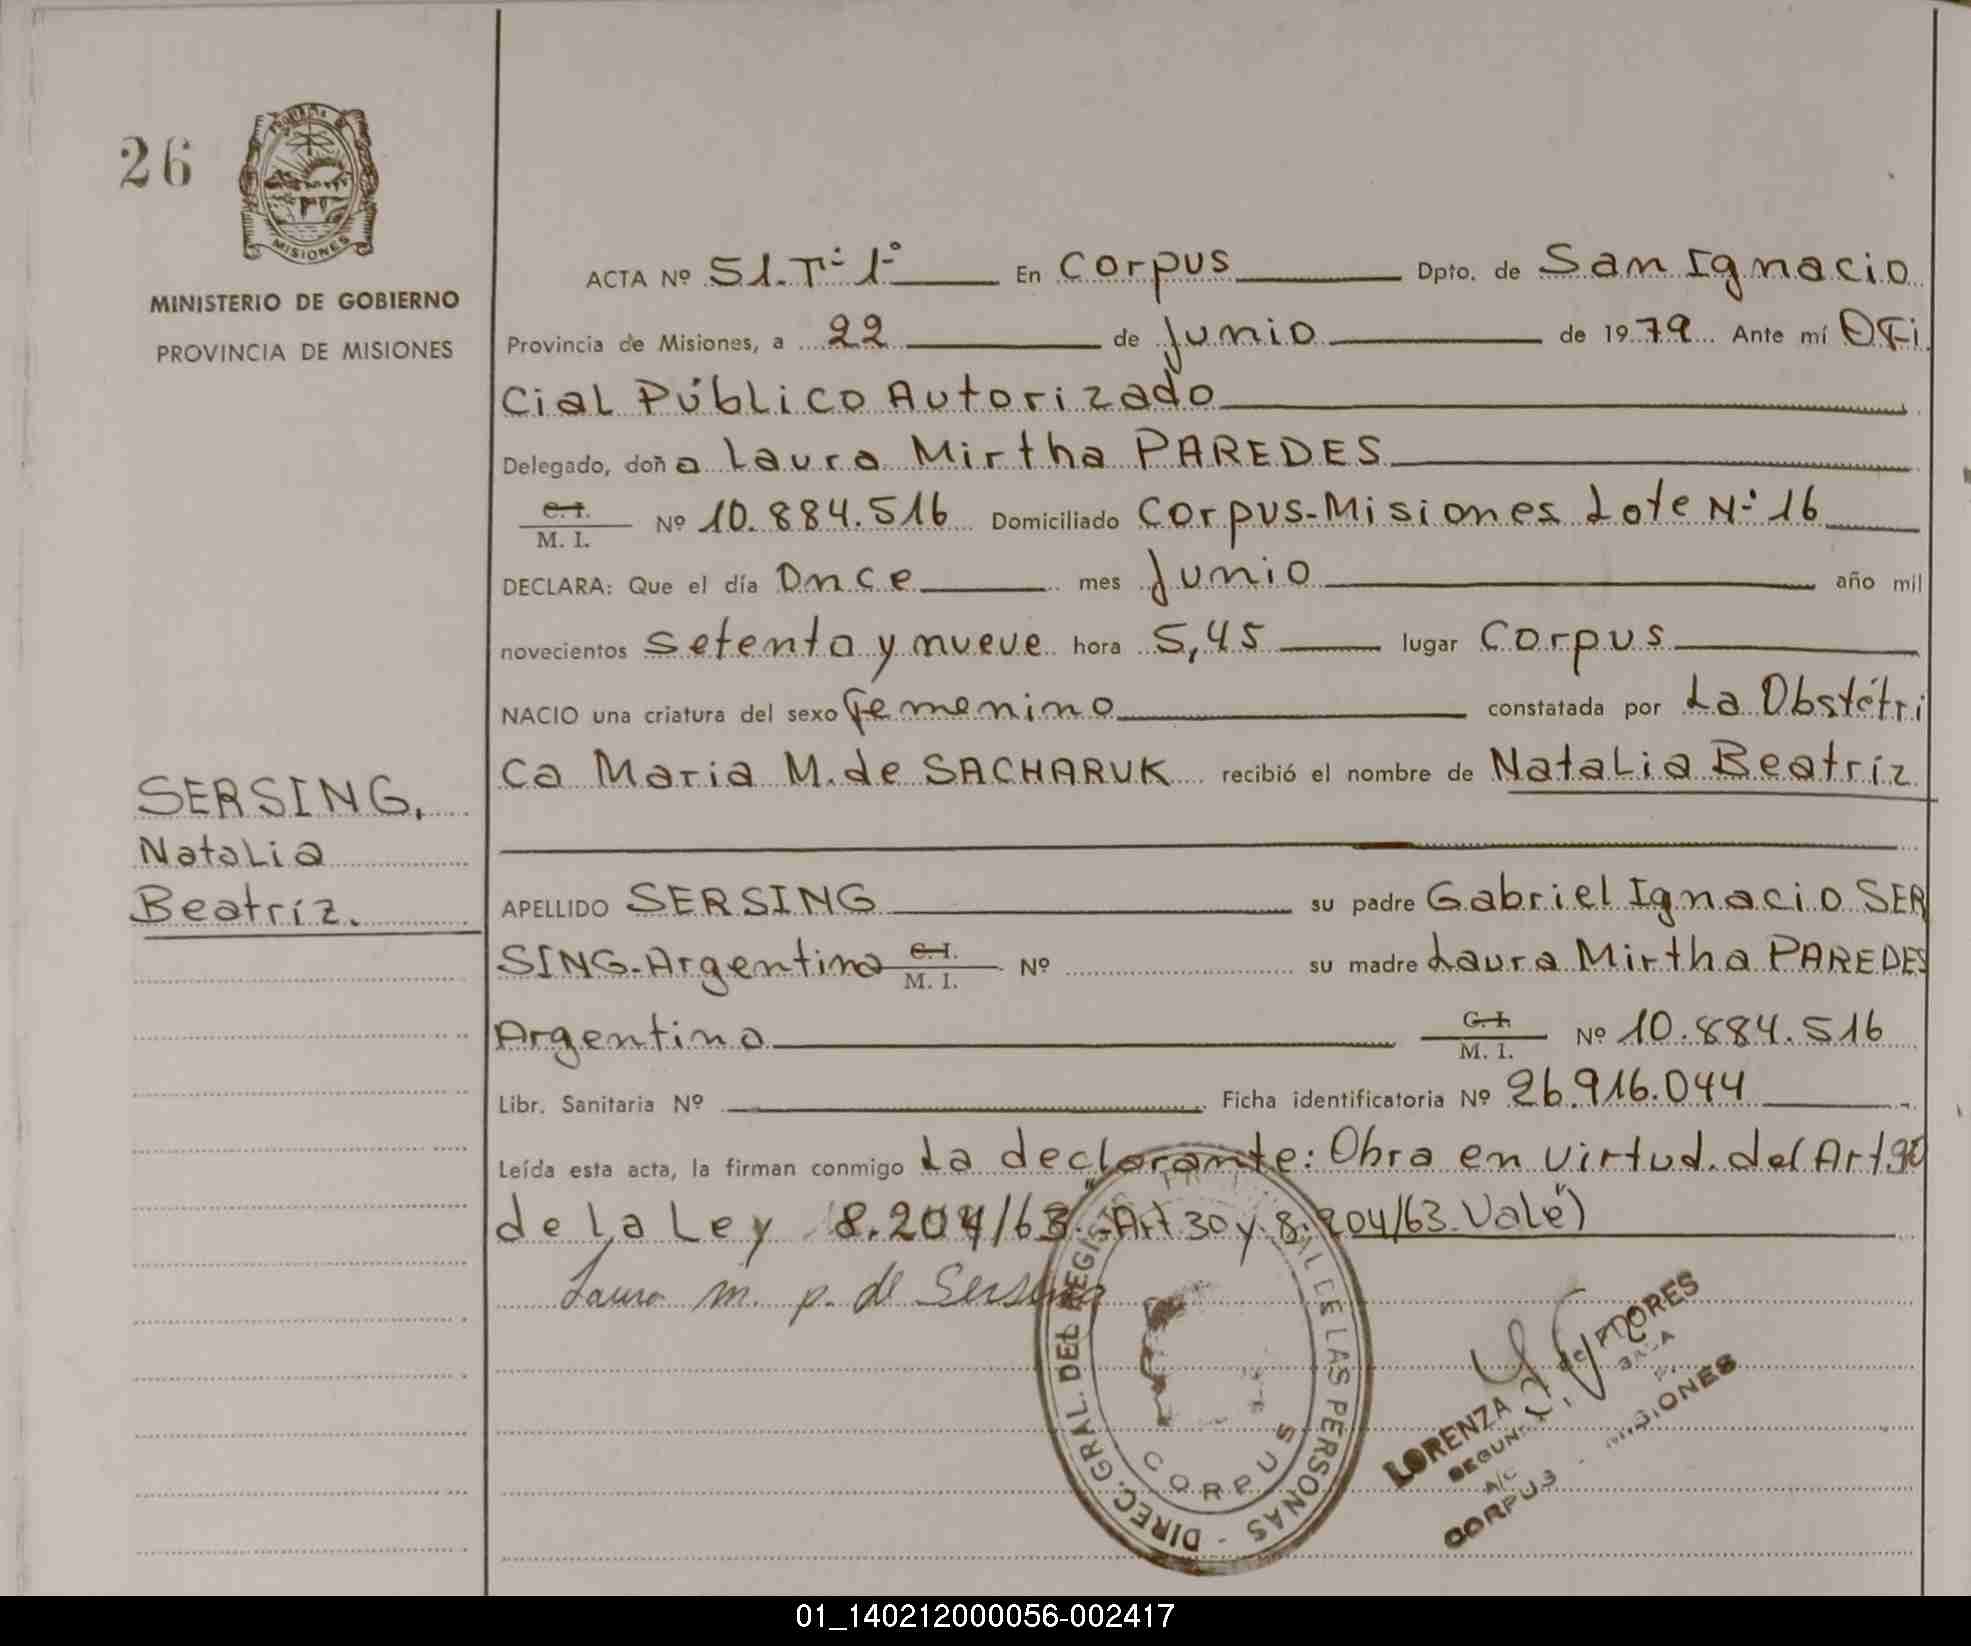 26
PROVINCIA
MISIONES
MINISTERIO DE GOBIERNO
PROVINCIA DE MISIONES
ACTA Nº 51.Tº 1º En Corpus Dpto. de San Ignacio
Provincia de Misiones, a 22 de Junio de 1979 Ante mí Ofi
cial Público Autorizado
Delegado, doña Laura Mirtha PAREDES
C.I.
M. I. Nº 10.884.516 Domiciliado Corpus-Misiones Lote Nº 16
DECLARA: Que el día Once mes Junio año mil
novecientos setenta y nueve hora 5,45 lugar Corpus
NACIO una criatura del sexo femenino constatada por La Obstétri
ca Maria M. de SACHARUK recibió el nombre de Natalia Beatríz
SERSING,
Natalia
Beatríz.
APELLIDO SERSING su padre Gabriel Ignacio SER
SING-Argentino C.I. M. I. Nº su madre Laura Mirtha PAREDES
Argentina C.I. M. I. Nº 10.884.516
Libr. Sanitaria Nº Ficha identificatoria Nº 26.916.044
Leída esta acta, la firman conmigo La declarante: Obra en virtud. del Art 30
de La Ley 8.204/63.-Art 30 y 8.204/63. Vale")
Laura m. p. de Sersing
DIREC. GRAL. DEL REGIST PR AL DE LAS PERSONAS -
CORPUS
LORENZA de FLORES
A/C
CORPUS - MISIONES
01_140212000056-002417